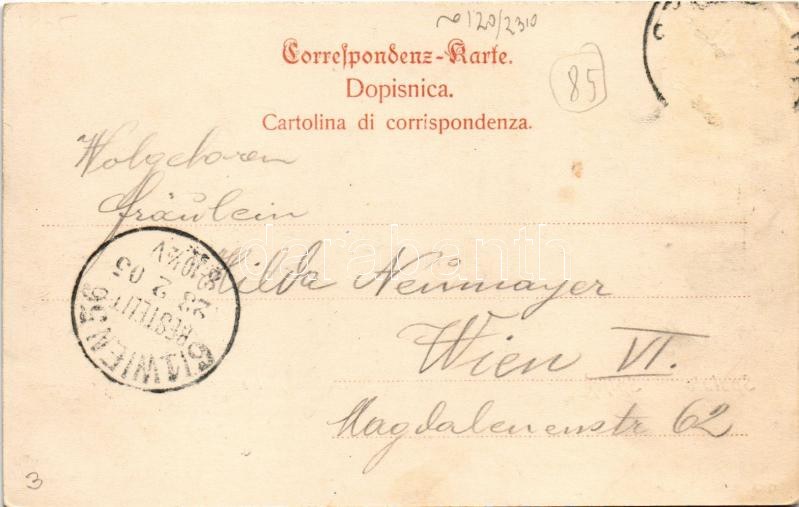 120/2310
Correspondenz-Karte.
85
Dopisnica.
Cartolina di corrispondenza.
Wolgeboren
Fräulein
darabanth
Hilda Neumayer
Wien VI.
Magdalenenstr 62
6/1 WIEN
BESTELLT
23 2 05
3